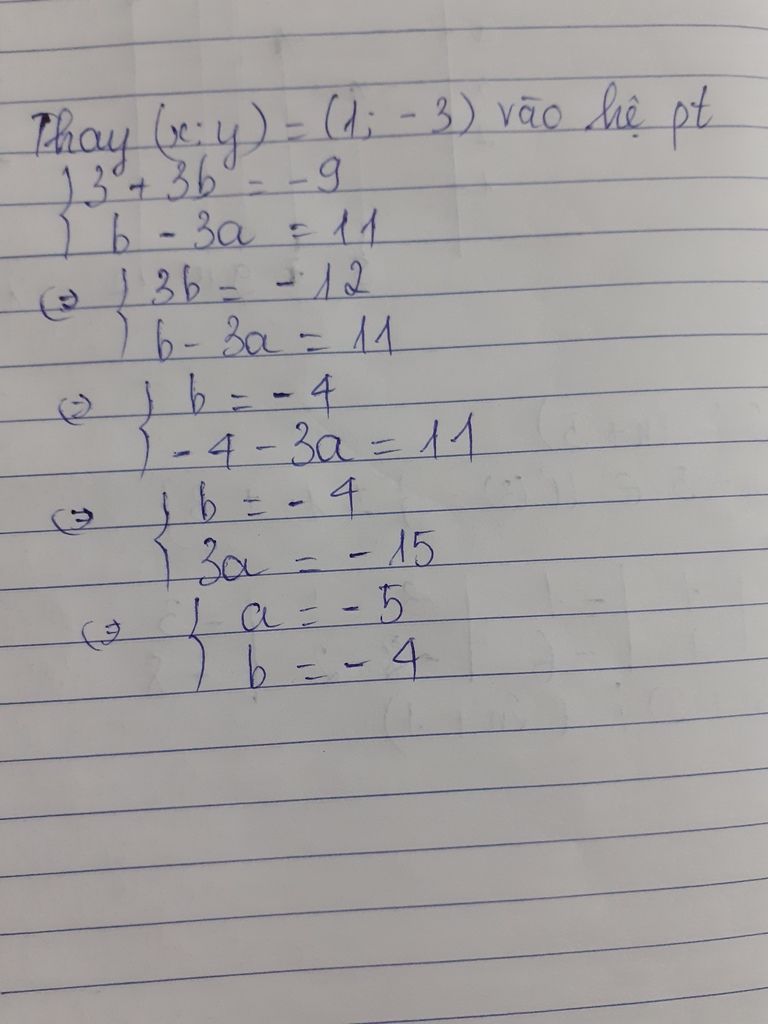 Thay (x; y) = (1; -3) vào hệ pt
{ 3 + 3b = -9
b - 3a = 11
<=> { 3b = -12
b - 3a = 11
<=> { b = -4
-4 - 3a = 11
<=> { b = -4
3a = -15
<=> { a = -5
b = -4